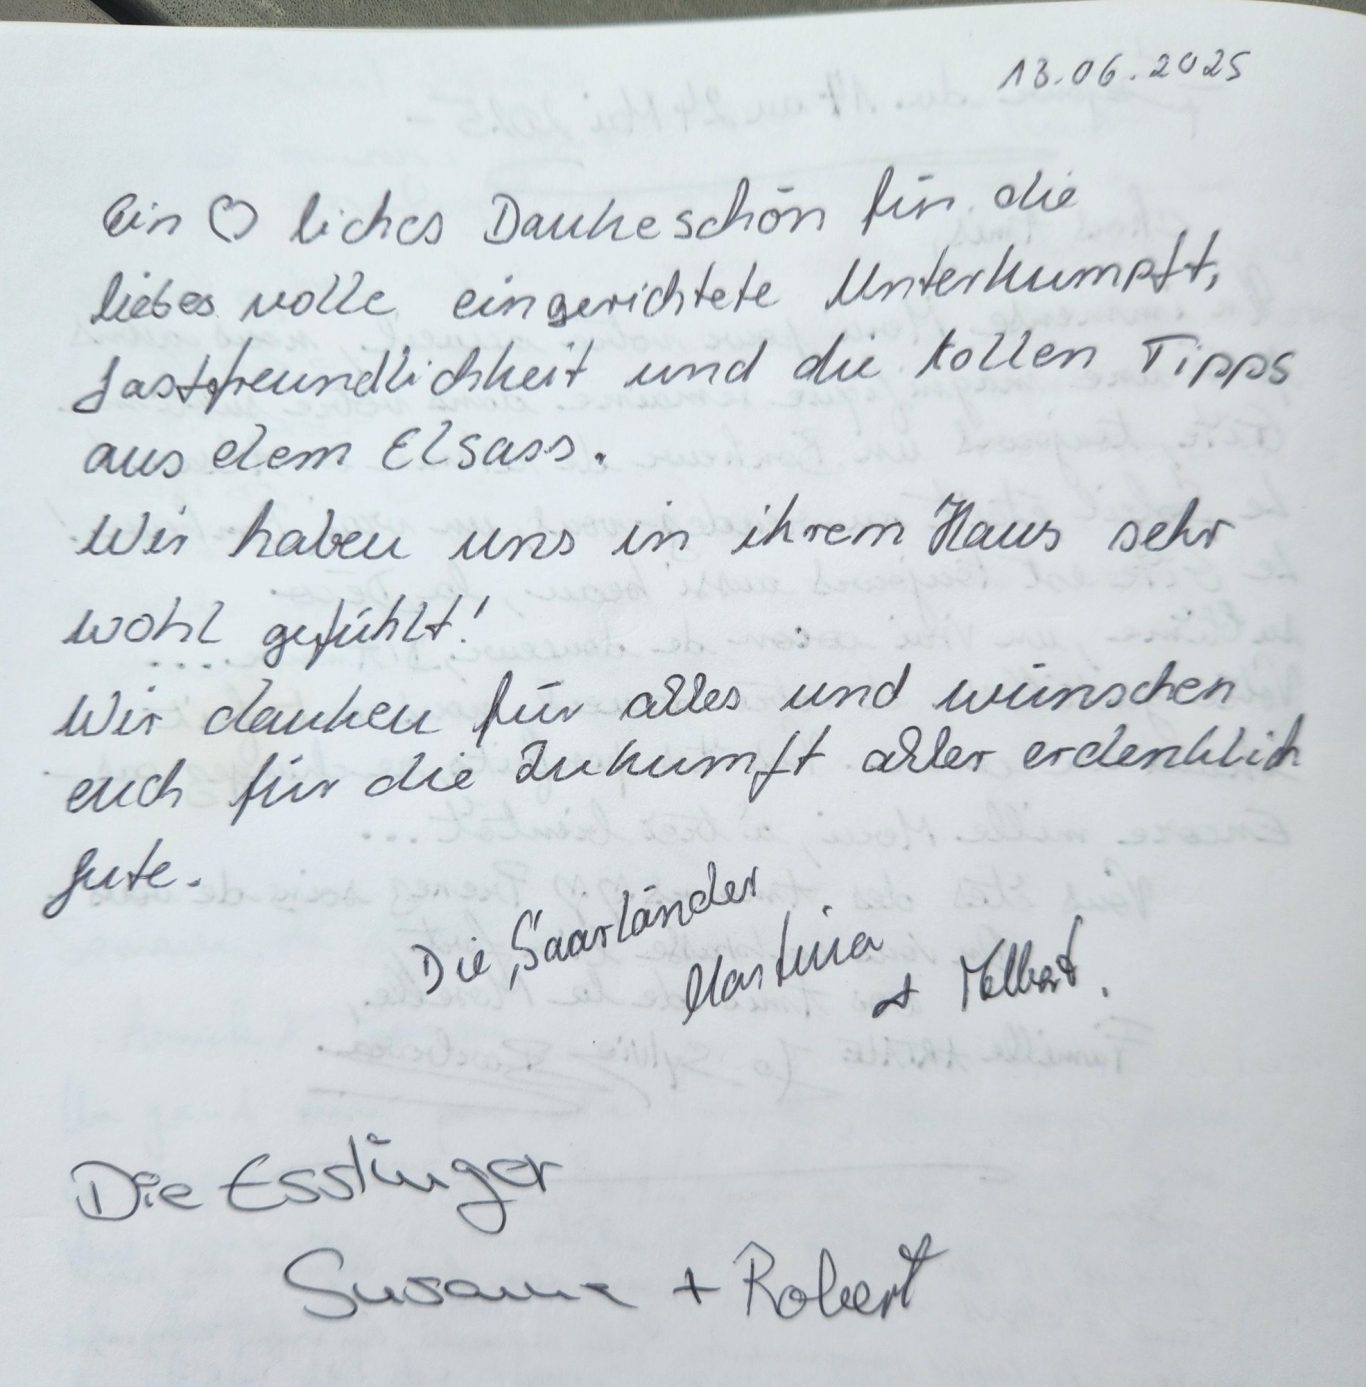 13.06.2025
Ein ♡ liches Dankeschön für die
liebes volle eingerichtete Unterkumpft,
Gastfreundlichkeit und die tollen Tipps
aus dem Elsass.
Wir haben uns in ihrem Haus sehr
wohl gefühlt!
Wir danken für alles und wünschen
euch für die Zukumft aller erdenklich
Gute.
Die "Saarländer
Martina
+
Die Esslinger
Susanne + Robert